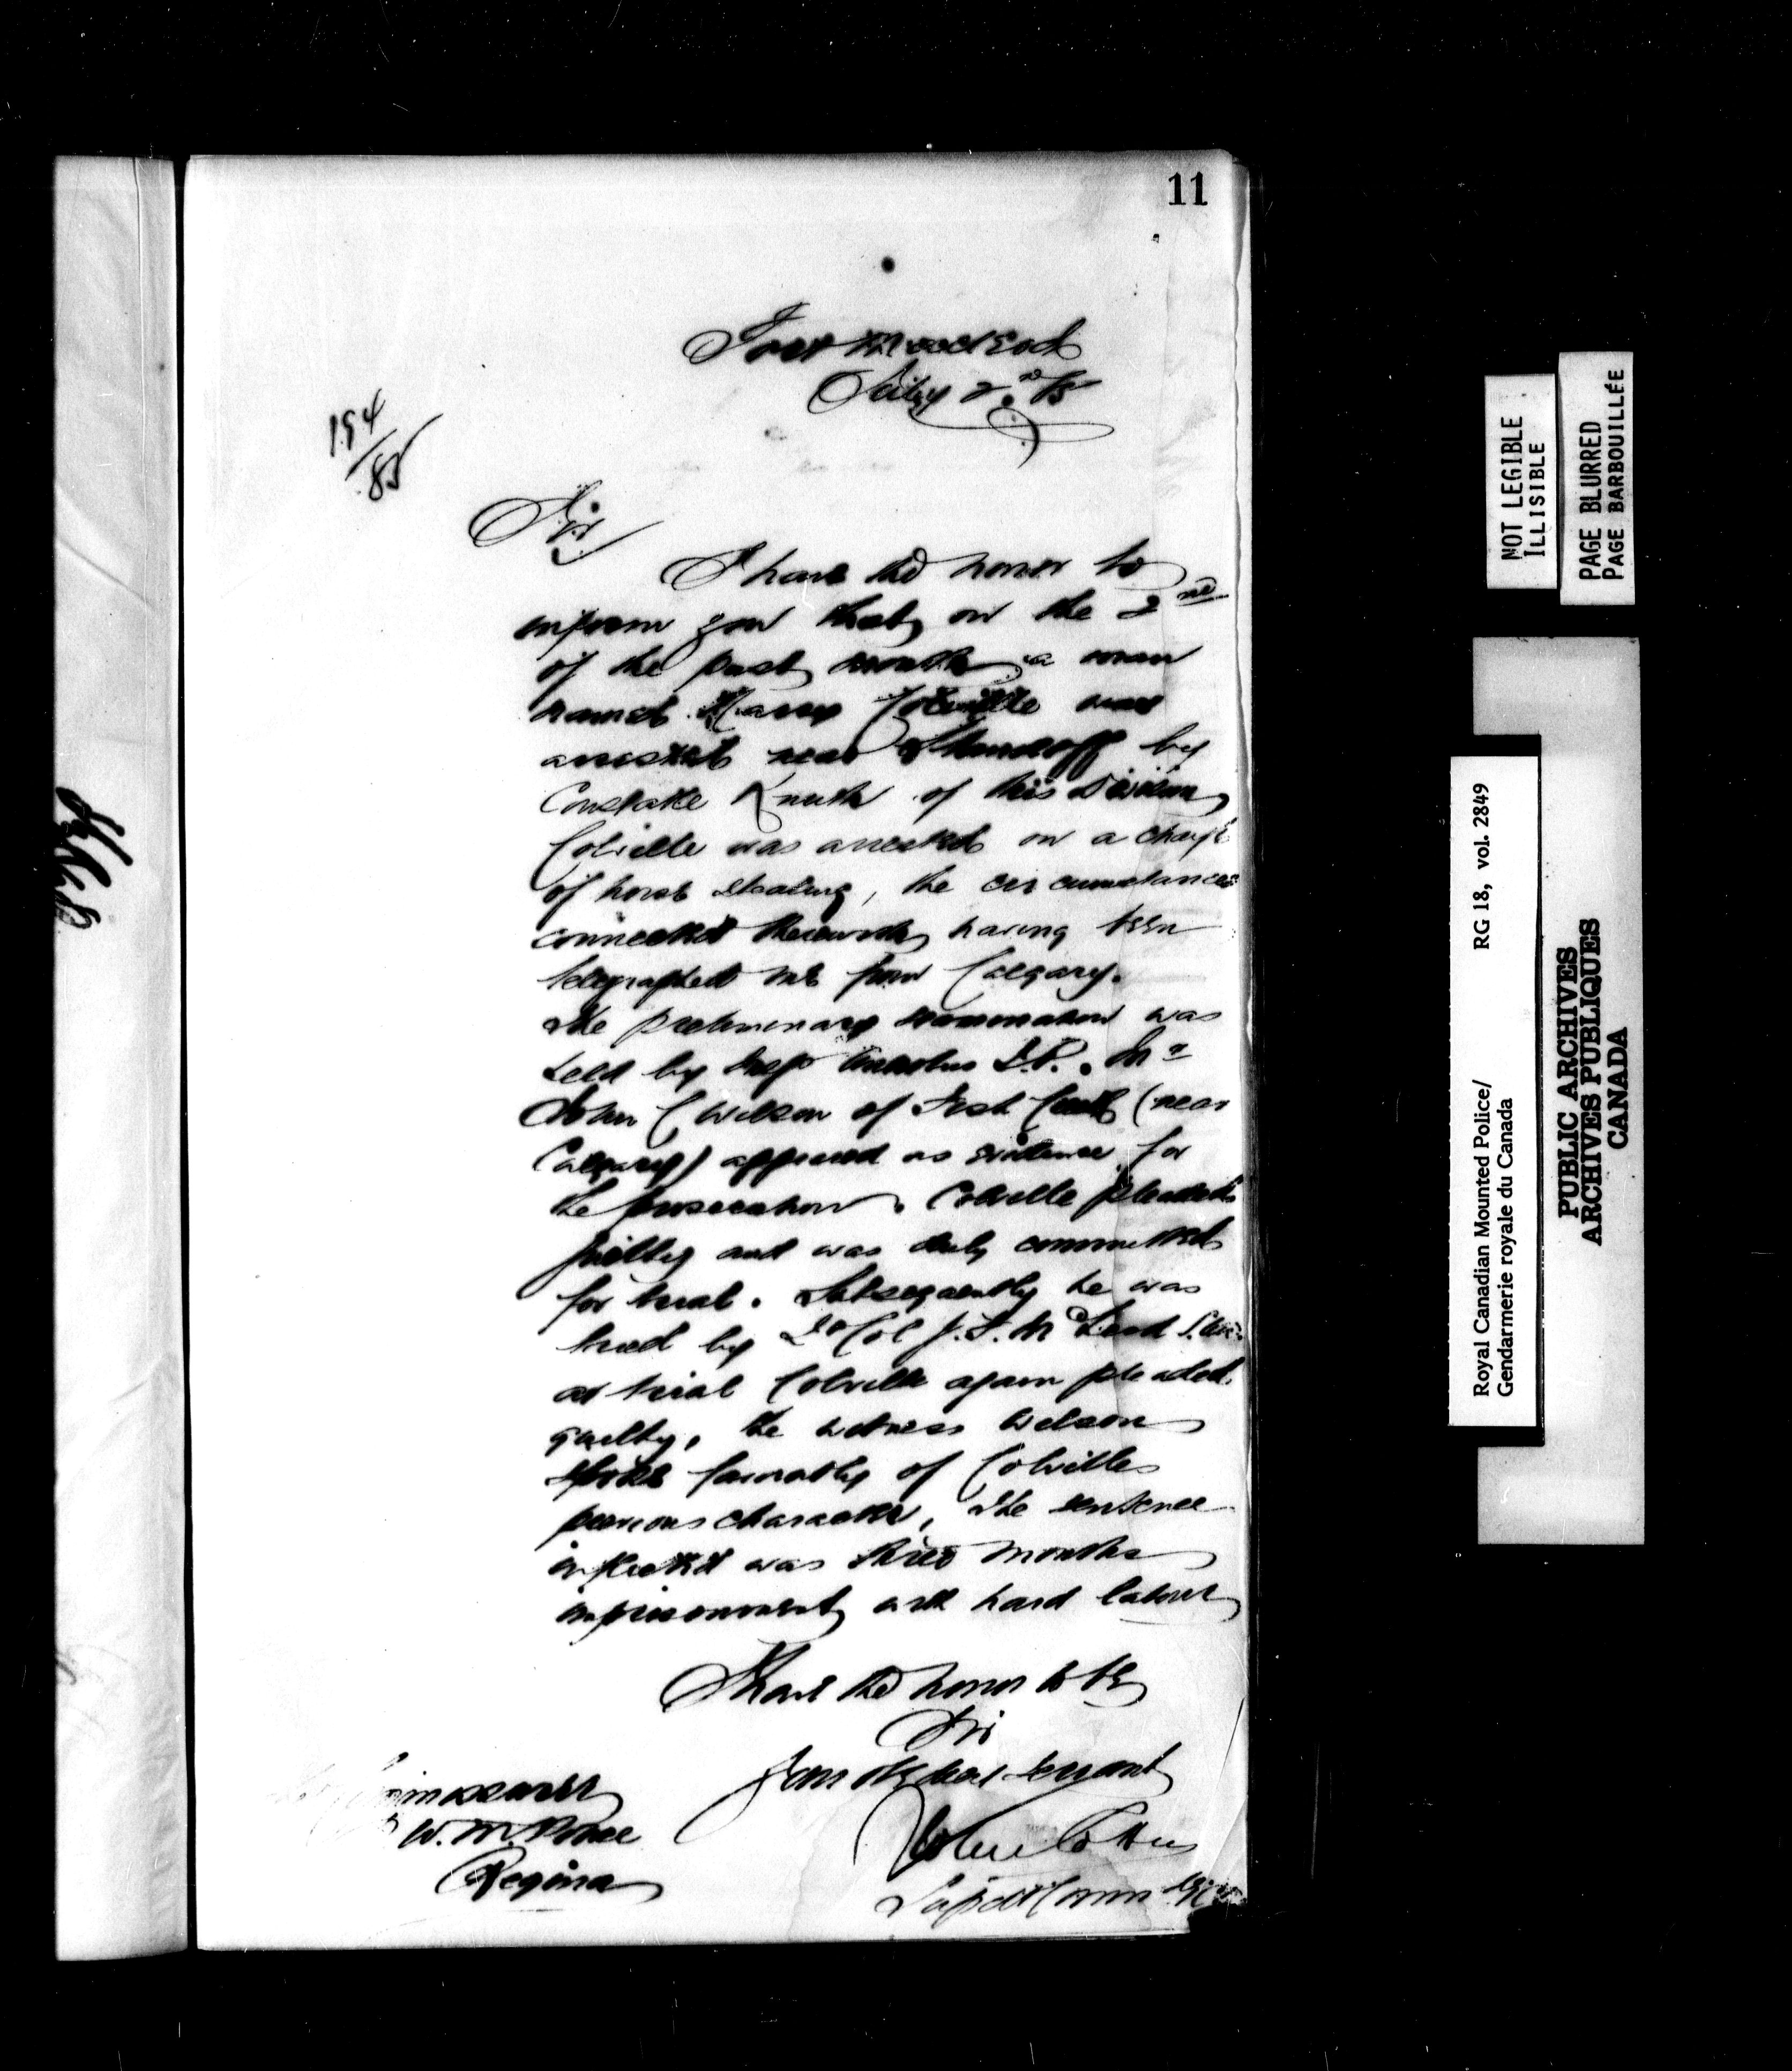 11
Fort Macleod
July 2nd /85
194/85
Sir
I have the honor to
inform you that on the 2nd
of the past month a man
named Harry Colville was
arrested near Standoff by
Constable of this Division
Colville was arrested on a charge
of horse stealing, the circumstances
connected therewith having been
telegraphed me from Calgary.
The preliminary examination was
held by J.P. Mr
John C Wilson of Fish Creek (near
Calgary) appeared as evidence for
the prosecution. Colville pleaded
guilty and was duly committed
for trial. Subsequently he was
tried by Lt Col J. F. McLeod
at trial Colville again pleaded
guilty, the witness Wilson
spoke favorably of Colvilles
previous character, The sentence
inflicted was three months
imprisonment with hard labour
I have the honor to be
Sir
Your obedient servant
John Cotton
Supdt Comm
Commissioner
N.W.M. Police
Regina
NOT LEGIBLE
ILLISIBLE
PAGE BLURRED
PAGE BARBOUILLÉE
Royal Canadian Mounted Police/ RG 18, vol. 2849
Gendarmerie royale du Canada
PUBLIC ARCHIVES
ARCHIVES PUBLIQUES
CANADA